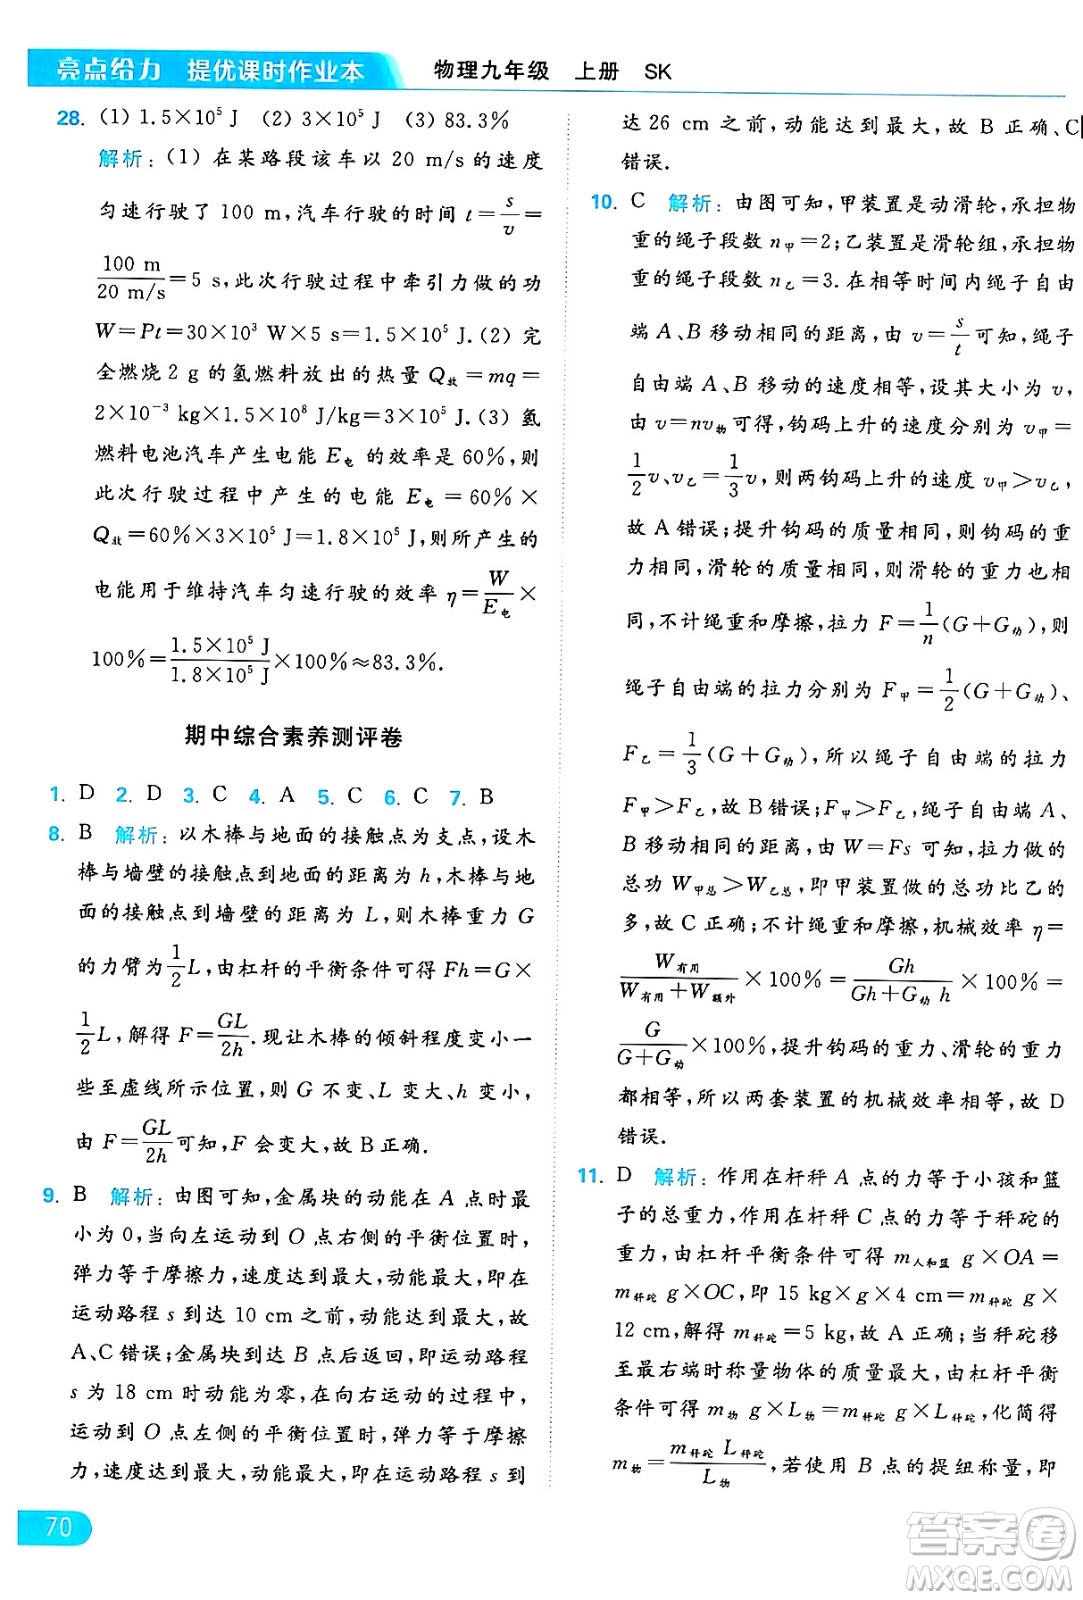 亮点给力 提优课时作业本 物理九年级 上册 SK
28. (1) 1.5×10⁵ J (2) 3×10⁵ J (3) 83.3%
解析：(1) 在某路段该车以 20 m/s 的速度
匀速行驶了 100 m，汽车行驶的时间 t = s/v =
100 m / 20 m/s = 5 s，此次行驶过程中牵引力做的功
W=Pt=30×10³ W×5 s=1.5×10⁵ J. (2) 完
全燃烧 2 g 的氢燃料放出的热量 Q放=mq=
2×10⁻³ kg×1.5×10⁸ J/kg=3×10⁵ J. (3) 氢
燃料电池汽车产生电能 E电 的效率是 60%，则
此次行驶过程中产生的电能 E电=60%×
Q放=60%×3×10⁵ J=1.8×10⁵ J，则所产生的
电能用于维持汽车匀速行驶的效率 η = W/E电 ×
100% = 1.5×10⁵ J / 1.8×10⁵ J ×100%≈83.3%.
期中综合素养测评卷
1. D 2. D 3. C 4. A 5. C 6. C 7. B
8. B 解析：以木棒与地面的接触点为支点，设木
棒与墙壁的接触点到地面的距离为 h，木棒与地
面的接触点到墙壁的距离为 L，则木棒重力 G
的力臂为 1/2 L，由杠杆的平衡条件可得 Fh=G×
1/2 L，解得 F = GL/2h. 现让木棒的倾斜程度变小一
些至虚线所示位置，则 G 不变、L 变大、h 变小，
由 F = GL/2h 可知，F 会变大，故 B 正确.
9. B 解析：由图可知，金属块的动能在 A 点时最
小为 0，当向左运动到 O 点右侧的平衡位置时，
弹力等于摩擦力，速度达到最大，动能最大，即在
运动路程 s 到达 10 cm 之前，动能达到最大，故
A、C 错误；金属块到达 B 点后返回，即运动路程
s 为 18 cm 时动能为零，在向右运动过程中，
运动到 O 点左侧的平衡位置时，弹力等于摩擦
力，速度达到最大，动能最大，即在运动路程 s 到
达 26 cm 之前，动能达到最大，故 B 正确、C
错误.
10. C 解析：由图可知，甲装置是动滑轮，承担物
重的绳子段数 n甲=2；乙装置是滑轮组，承担物
重的绳子段数 n乙=3. 在相等时间内绳子自由
端 A、B 移动相同的距离，由 v = s/t 可知，绳子
自由端 A、B 移动的速度相等，设其大小为 v，
由 v=nv物 可得，钩码上升的速度分别为 v甲=
1/2 v、v乙 = 1/3 v，则两钩码上升的速度 v甲＞v乙，
故 A 错误；提升钩码的质量相同，则钩码的重
力相同，滑轮的质量相同，则滑轮的重力也相
同，不计绳重和摩擦，拉力 F = 1/n (G+G动)，则
绳子自由端的拉力分别为 F甲 = 1/2 (G+G动)、
F乙 = 1/3 (G+G动)，所以绳子自由端的拉力
F甲＞F乙，故 B 错误；F甲＞F乙，绳子自由端 A、
B 移动相同的距离，由 W=Fs 可知，拉力做的
总功 W甲总＞W乙总，即甲装置做的总功比乙的
多，故 C 正确；不计绳重和摩擦，机械效率 η=
W有用 / W有用+W额外 ×100% = Gh / Gh+G动 h ×100% =
G / G+G动 ×100%，提升钩码的重力、滑轮的重力
都相等，所以两套装置的机械效率相等，故 D
错误.
11. D 解析：作用在杆秤 A 点的力等于小孩和篮
子的总重力，作用在杆秤 C 点的力等于秤砣的
重力，由杠杆平衡条件可得 m人和篮 g×OA=
m秤砣 g×OC，即 15 kg×g×4 cm=m秤砣 g×
12 cm，解得 m秤砣=5 kg，故 A 正确；当秤砣移
至最右端时称量物体的质量最大，由杠杆平衡
条件可得 m物 g×L物=m秤砣 g×L秤砣，化简得
m物 = m秤砣 L秤砣 / L物，若使用 B 点的提纽称量，即
70
答案圈
MXQE.COM